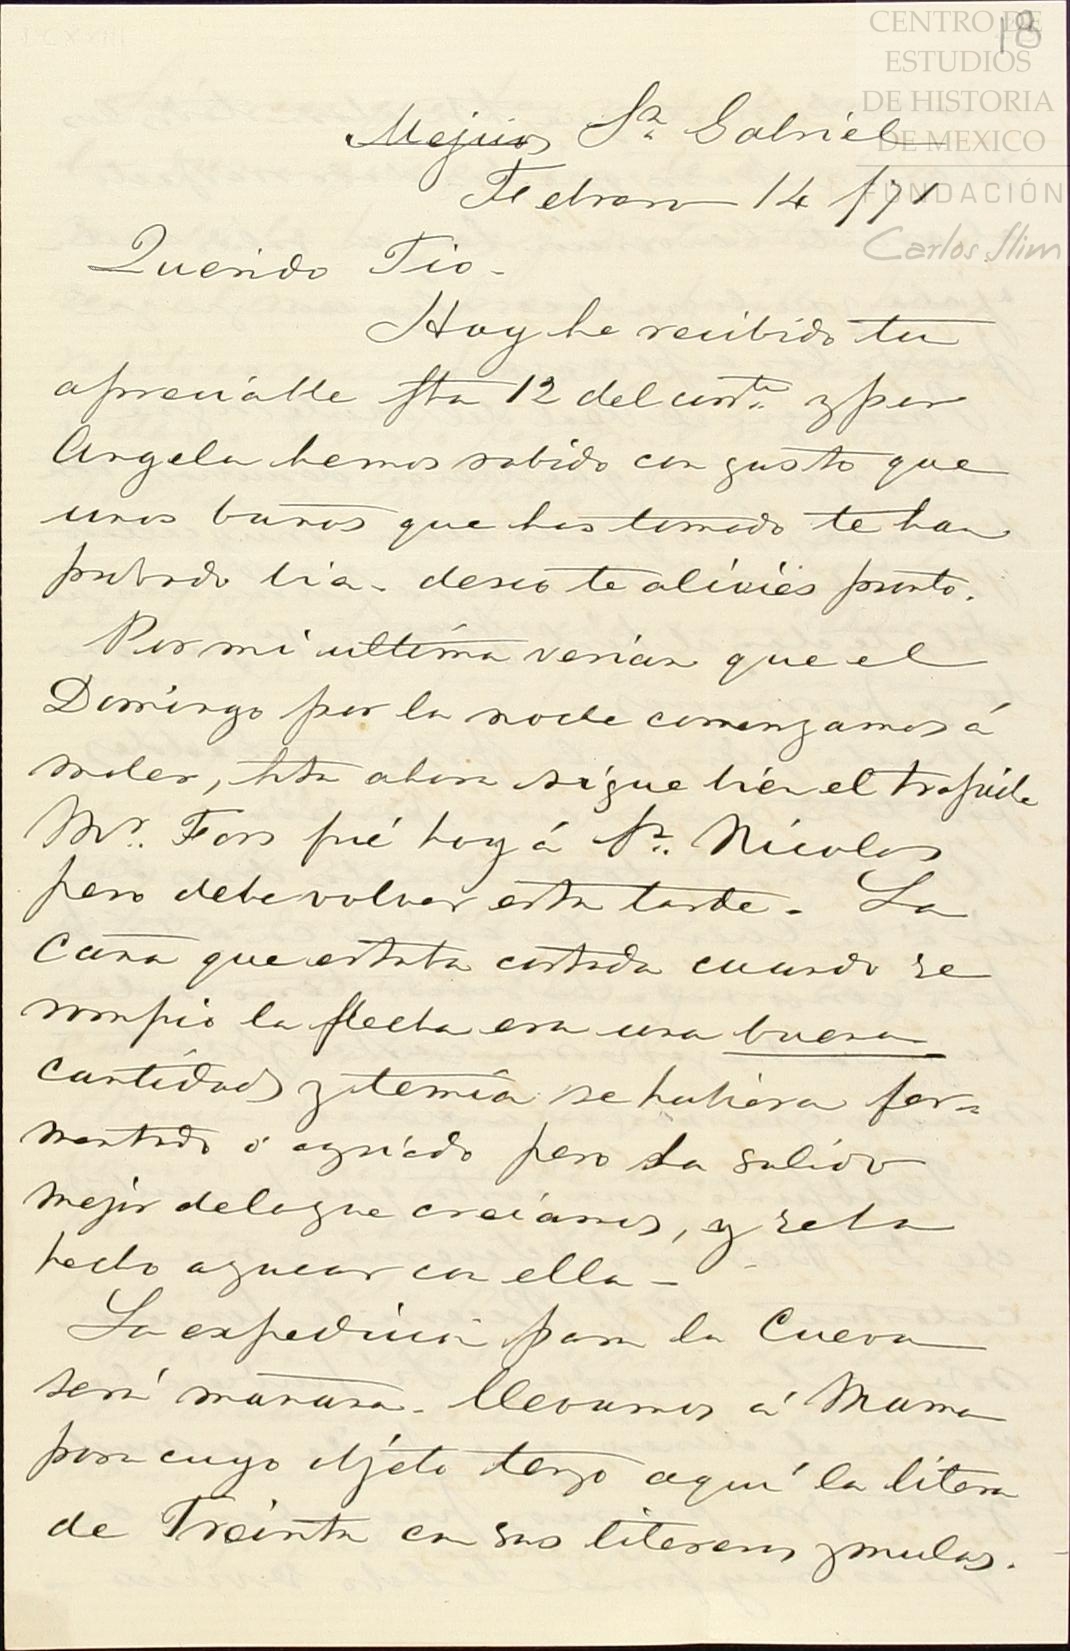 18
CENTRO DE
ESTUDIOS
DE HISTORIA
DE MEXICO
FUNDACIÓN
Carlos Slim
Mejico Sn. Gabriel
Febrero 14 /71
Querido Tio-
Hoy he recibido tu
apreciable fha 12 del corrte. y por
Angela hemos sabido con gusto que
unos baños que has tomado te han
probado bien- deseo te alivies pronto.
Por mi ultima verian que el
Domingo por la noche comenzamos á
moler, hta ahora sigue bien el trapiche
Mr. Fors fué hoy á Sn. Nicolas
pero debe volver esta tarde. La
Caña que estaba cortada cuando se
rompio la flecha era una buena
cantidad y temia se hubiera fer-
mentado ó agriado pero ha salido
mejor de lo que creiamos, y se ha
hecho azucar con ella-
La expedicion para la Cueva
será mañana. llevamos á Mama
para cuyo objeto tengo aquí la litera
de Treinta con sus litereros y mulas.